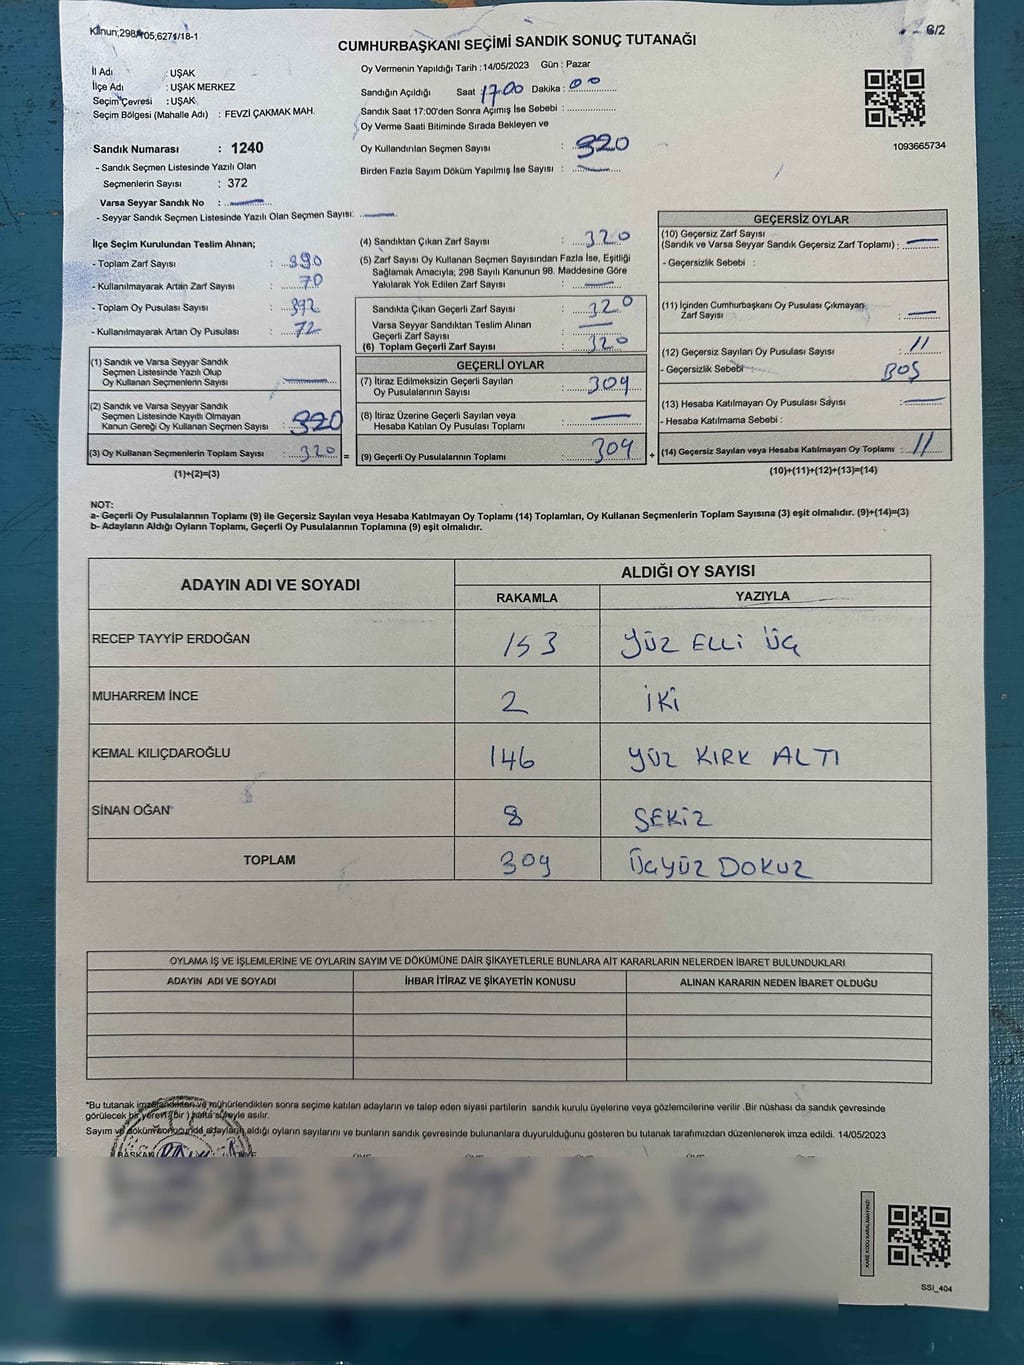 Kanun;298/105;6271/18-1
6/2
CUMHURBAŞKANI SEÇİMİ SANDIK SONUÇ TUTANAĞI
İl Adı : UŞAK
İlçe Adı : UŞAK MERKEZ
Seçim Çevresi : UŞAK
Seçim Bölgesi (Mahalle Adı) : FEVZİ ÇAKMAK MAH.
Sandık Numarası : 1240
- Sandık Seçmen Listesinde Yazılı Olan
Seçmenlerin Sayısı : 372
Varsa Seyyar Sandık No : —
- Seyyar Sandık Seçmen Listesinde Yazılı Olan Seçmen Sayısı: —
Oy Vermenin Yapıldığı Tarih : 14/05/2023 Gün : Pazar
Sandığın Açıldığı Saat 17.00 Dakika : 00
Sandık Saat 17:00'den Sonra Açımış İse Sebebi :
Oy Verme Saati Bitiminde Sırada Bekleyen ve
Oy Kullandırılan Seçmen Sayısı : 320
Birden Fazla Sayım Döküm Yapılmış İse Sayısı : —
1093665734
İlçe Seçim Kurulundan Teslim Alınan;
- Toplam Zarf Sayısı : 390
- Kullanılmayarak Artan Zarf Sayısı : 70
- Toplam Oy Pusulası Sayısı : 392
- Kullanılmayarak Artan Oy Pusulası : 72
(1) Sandık ve Varsa Seyyar Sandık
Seçmen Listesinde Yazılı Olup
Oy Kullanan Seçmenlerin Sayısı : —
(2) Sandık ve Varsa Seyyar Sandık
Seçmen Listesinde Kayıtlı Olmayan
Kanun Gereği Oy Kullanan Seçmen Sayısı : 320
(3) Oy Kullanan Seçmenlerin Toplam Sayısı : 320 =
(1)+(2)=(3)
(4) Sandıktan Çıkan Zarf Sayısı : 320
(5) Zarf Sayısı Oy Kullanan Seçmen Sayısından Fazla İse, Eşitliği
Sağlamak Amacıyla; 298 Sayılı Kanunun 98. Maddesine Göre
Yakılarak Yok Edilen Zarf Sayısı : —
Sandıkta Çıkan Geçerli Zarf Sayısı : 320
Varsa Seyyar Sandıktan Teslim Alınan
Geçerli Zarf Sayısı : —
(6) Toplam Geçerli Zarf Sayısı : 320
GEÇERLİ OYLAR
(7) İtiraz Edilmeksizin Geçerli Sayılan
Oy Pusulalarının Sayısı : 309
(8) İtiraz Üzerine Geçerli Sayılan veya
Hesaba Katılan Oy Pusulası Toplamı : —
(9) Geçerli Oy Pusulalarının Toplamı : 309 +
GEÇERSİZ OYLAR
(10) Geçersiz Zarf Sayısı
(Sandık ve Varsa Seyyar Sandık Geçersiz Zarf Toplamı) : —
- Geçersizlik Sebebi :
(11) İçinden Cumhurbaşkanı Oy Pusulası Çıkmayan
Zarf Sayısı : —
(12) Geçersiz Sayılan Oy Pusulası Sayısı : 11
- Geçersizlik Sebebi : BOŞ
(13) Hesaba Katılmayan Oy Pusulası Sayısı : —
- Hesaba Katılmama Sebebi :
(14) Geçersiz Sayılan veya Hesaba Katılmayan Oy Toplamı : 11
(10)+(11)+(12)+(13)=(14)
NOT:
a- Geçerli Oy Pusulalarının Toplamı (9) ile Geçersiz Sayılan veya Hesaba Katılmayan Oy Toplamı (14) Toplamları, Oy Kullanan Seçmenlerin Toplam Sayısına (3) eşit olmalıdır. (9)+(14)=(3)
b- Adayların Aldığı Oyların Toplamı, Geçerli Oy Pusulalarının Toplamına (9) eşit olmalıdır.
ADAYIN ADI VE SOYADI ALDIĞI OY SAYISI
RAKAMLA YAZIYLA
RECEP TAYYİP ERDOĞAN 153 YÜZ ELLİ ÜÇ
MUHARREM İNCE 2 İKİ
KEMAL KILIÇDAROĞLU 146 YÜZ KIRK ALTI
SİNAN OĞAN 8 SEKİZ
TOPLAM 309 ÜÇYÜZ DOKUZ
OYLAMA İŞ VE İŞLEMLERİNE VE OYLARIN SAYIM VE DÖKÜMÜNE DAİR ŞİKAYETLERLE BUNLARA AİT KARARLARIN NELERDEN İBARET BULUNDUKLARI
ADAYIN ADI VE SOYADI İHBAR İTİRAZ VE ŞİKAYETİN KONUSU ALINAN KARARIN NEDEN İBARET OLDUĞU
*Bu tutanak imzalandıktan ve mühürlendikten sonra seçime katılan adayların ve talep eden siyasi partilerin sandık kurulu üyelerine veya gözlemcilerine verilir .Bir nüshası da sandık çevresinde
görülecek bir yere1 (bir ) hafta süreyle asılır.
Sayım ve döküm sonucunda adayların aldığı oyların sayılarını ve bunların sandık çevresinde bulunanlara duyurulduğunu gösteren bu tutanak tarafımızdan düzenlenerek imza edildi. 14/05/2023
BAŞKAN
KARE KODU KARALAMAYINIZ!
SSI_404